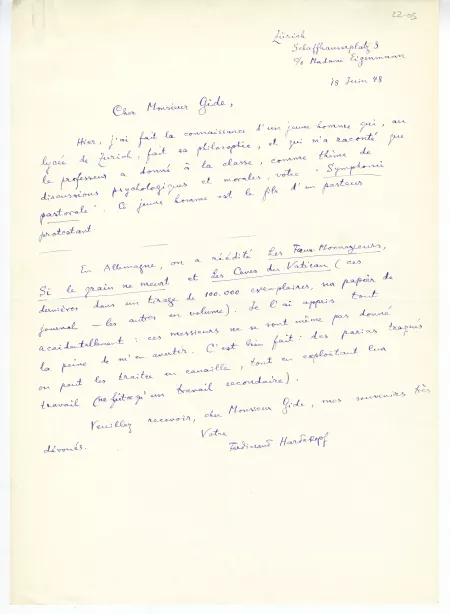 22-05
Zürich
Schaffhauserplatz 3
c/o Madame Eigenmann
18 Juin 48
Cher Monsieur Gide,
Hier, j'ai fait la connaissance d'un jeune homme qui, au
lycée de Zürich, fait sa philosophie, et qui m'a raconté que
le professeur a donné à la classe, comme thème de
discussions psychologiques et morales, votre „Symphonie
pastorale". Ce jeune homme est le fils d'un pasteur
protestant.
En Allemagne, on a réédité Les Faux-Monnayeurs,
Si le grain ne meurt et Les Caves du Vatican (ces
dernières dans un tirage de 100.000 exemplaires, sur papier de
journal – les autres en volume). Je l'ai appris tout
accidentellement: ces messieurs ne se sont même pas donné
la peine de m'en avertir. C'est bien fait: des parias traqués
on peut les traiter en canaille, tout en exploitant leur
travail (ne fût-ce qu'un travail secondaire).
Veuillez recevoir, cher Monsieur Gide, mes souvenirs très
dévoués.
Votre
Ferdinand Hardekopf